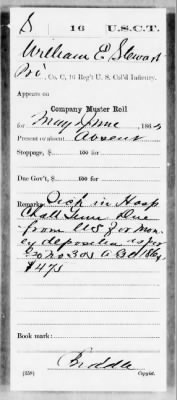 S | 16 | U.S.C.T.
William E Stewart
Pvt, Co. C, 16 Reg't U. S. Col'd Infantry.
Appears on
Company Muster Roll
for May & June, 1865
Present or absent Absent
Stoppage, $ 100 for
Due Gov't, $ 100 for
Remarks: Sick in Hosp
Chatt Tenn Due
from US for mon
ey deposited as per
No 305 A
$475
Book mark:
Biddle
(358) Copyist.